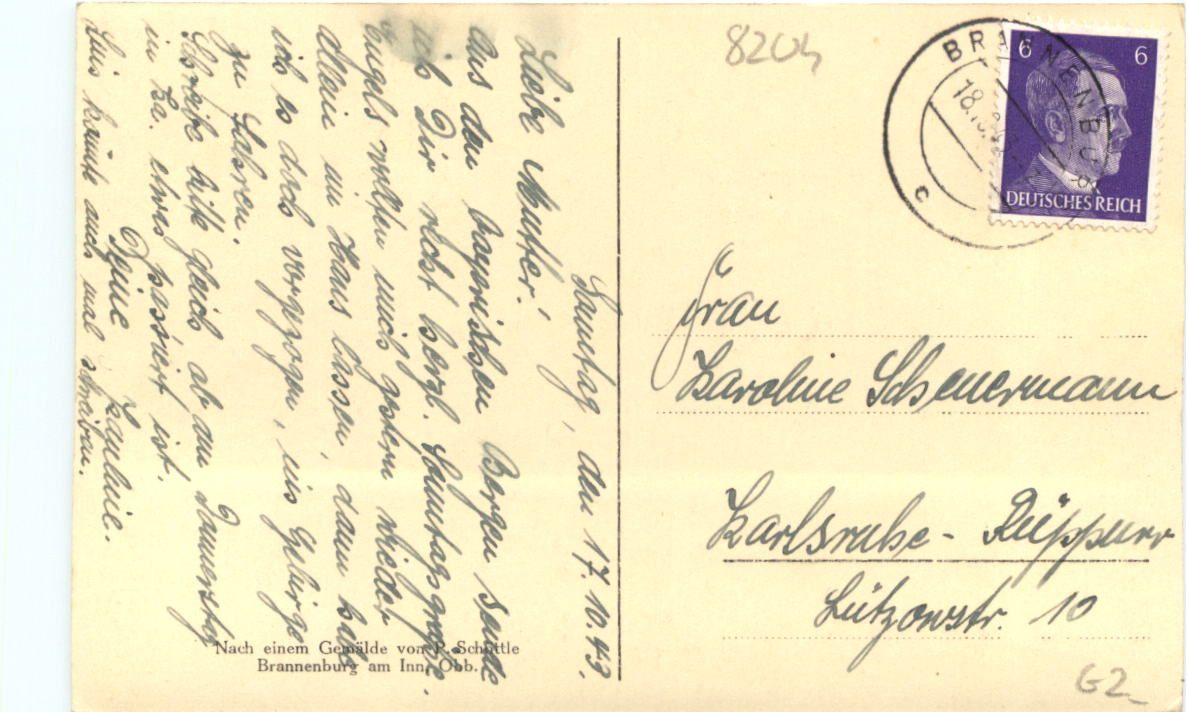 Samstag, den 17.10.43.
Liebe Mutter!
Aus den bayrischen Bergen sende
ich Dir recht herzl. Sonntagsgrüße.
Engels wollten mich gestern wieder
allein im Haus lassen, dann hab
ich es doch vorgezogen, ins Gebirge
zu fahren.
Schreibe bitte gleich ob am Donnerstag
in Ka. etwas passiert ist.
Deine Pauline.
könnte auch mal schreiben.
Nach einem Gemälde von P. Schüttle
Brannenburg am Inn, Obb.
8204
BRANNENBURG
18.10.43
c
6 6
DEUTSCHES REICH
Frau
Karoline Scheuermann
Karlsruhe - Rüppurr
Lützowstr. 10
G2